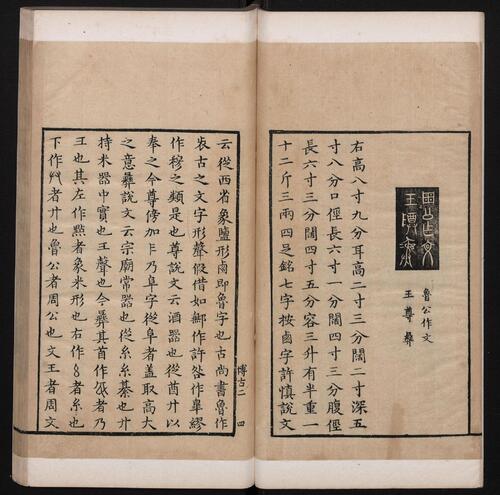 魯公作文
王尊彝
右高八寸九分耳高二寸三分闊二寸深五
寸八分口徑長六寸一分闊四寸三分腹徑
長六寸三分闊四寸五分容三升有半重一
十二斤三兩四足銘七字按鹵字許慎說文
博古二 四
云從西省象鹽形鹵即魯字也古尚書魯作
古之文字形聲假借如鄦作許咎作皐繆
作穆之類是也尊說文云酒器也從酋廾以
奉之今尊傍加阝乃阜字從阜者蓋取高大
之意彝說文云宗廟常器也從糸糸綦也廾
持米器中實也彑聲也今彝其首作者乃
彑也其左作㸃者象米形也右作者糸也
下作者廾也魯公者周公也文王者周文